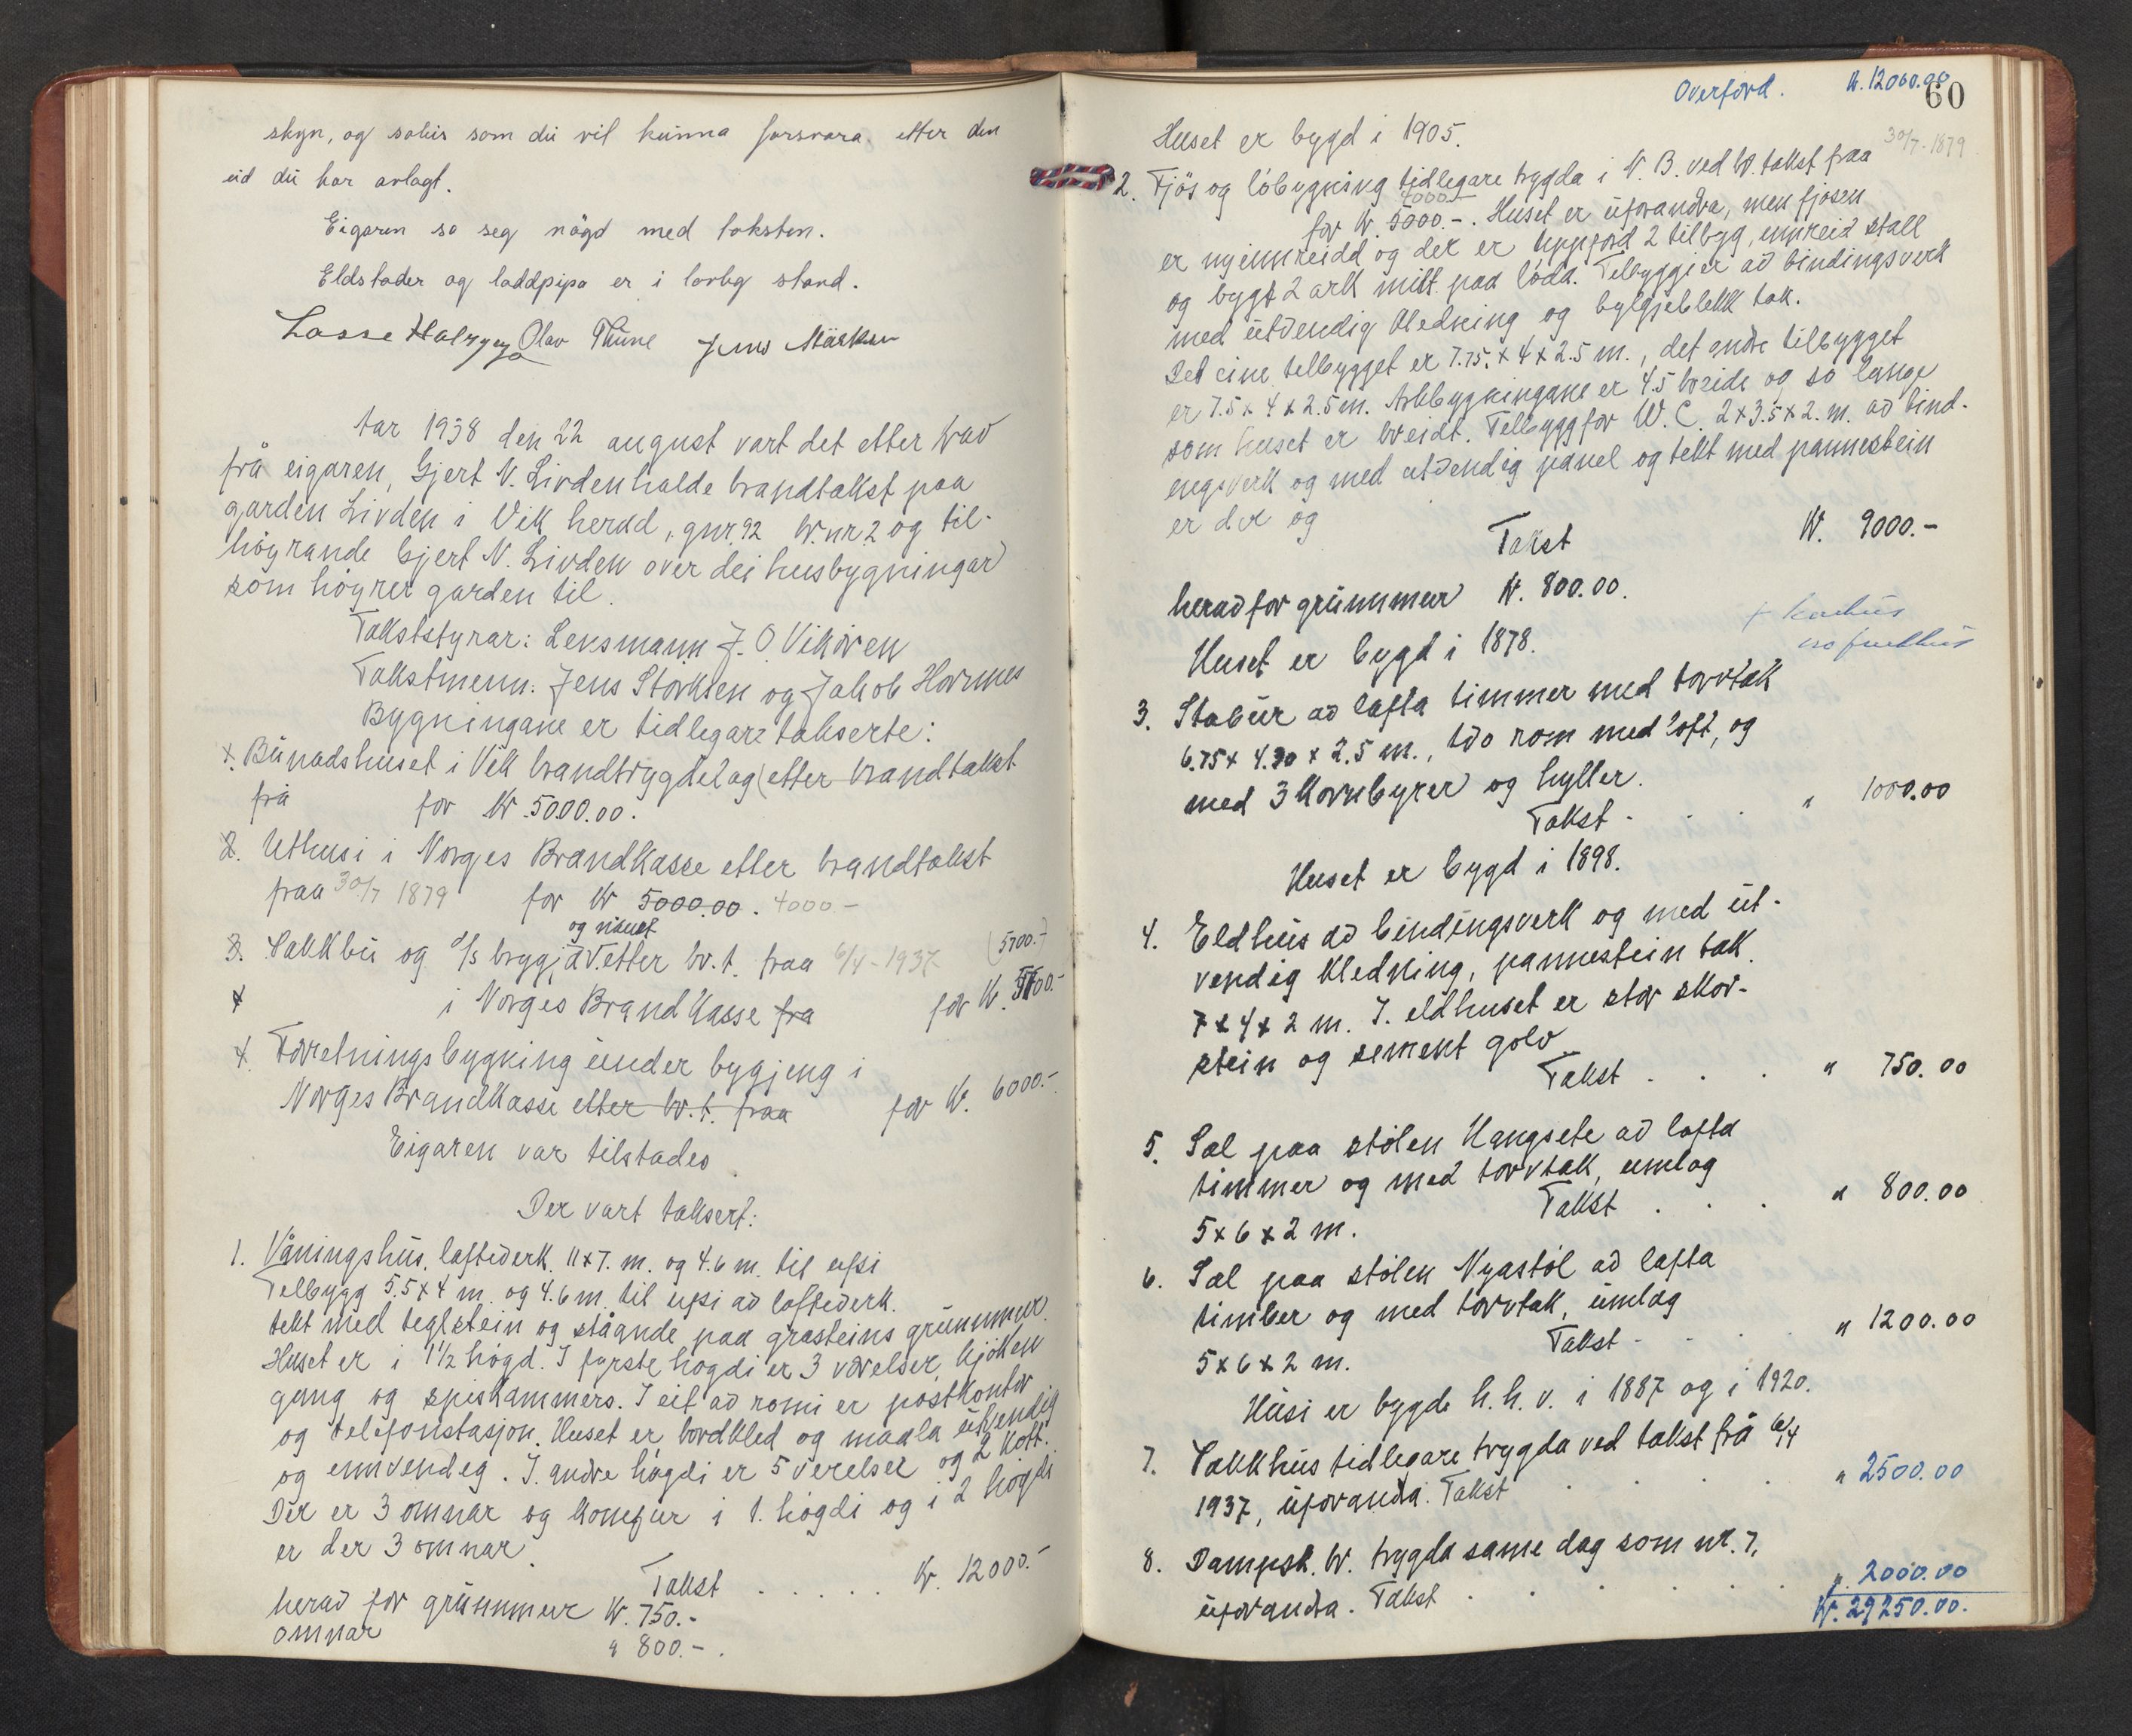 skyn, og soleis som du vil kunna forsvara etter den
eid du har avlagt.
Eigaren sa seg nögd med taksten.
Eldstader og laddpipa er i lovleg stand.
Lasse Olav Thune Jens
Aar 1938 den 22 august vart det etter krav
frå eigaren, Gjert N. Livden halde brandtakst paa
garden Livden i Vik herad, gnr. 92 br.nr. 2 og til-
höyrande Gjert N. Livden over dei husbygningar
som höyrer garden til.
Takststyrar: Lensmann J. O. Vikören
Takstmenn: Jens Storksen og Jakob Hovrnes
Bygningane er tidlegare takserte:
1. Bunadshuset i Vik brandtrygdelag (etter brandtakst
frå for Kr. 5000.00.
2. Uthusi i Norges Brandkasse etter brandtakst
praa 30/7 1879 for Kr 5000.00. 4000 -
og naust
3. Pakkbu og d/s bryggja v. etter br.t. fraa 6/4 - 1937 (5700.-)
i Norges Brandkasse fra for Kr. 5700.-
4. Forretningsbygning under bygjeng i
Norges Brandkasse etter br.t. fraa for Kr. 6000.-
Eigaren var tilstades
Der vart taksert:
1. Våningshus, lafteverk 11 x 7. m. og 4.6 m. til ufsi
Tilbygg 5.5 x 4 m. og 4.6 m. til ufsi av lafteverk.
tekt med teglstein og ståande paa grasteins grunnmur.
Huset er i 1 1/2 högd. I fyrste högdi er 3 værelser, kjöken
gang og spiskammers. I eit av romi er postkontor
og telefonstasjon. Huset er bordkled og maala utvendig
og innvendeg. I andre högdi er 5 verelser og 2 kott.
Der er 3 omnar og komfur i 1. högdi og i 2 högdi
er der 3 omnar.
Takst . . . . . Kr. 12000.-
herav for grunnmur Kr. 750.-
omnar " 800.-.
Overförd. Kr. 12000.00
60
Huset er bygd i 1905.
30/7 - 1879
2. Fjös og löbygning tidlegare trygda i N. B. ved br. takst fraa
4000.-
for Kr. 5000.-. Huset er uforandra, men fjosen
er nyinnreidd og det er uppförd 2 tilbyg, innreid stall
og bygt 2 ark mitt paa löda. Tilbyggi er av bindingsverk
med utvendig kledning og bylgjeblekk tak.
Det eine tilbygget er 7.75 x 4 x 2.5 m., det andre tilbygget
er 7.5 x 4 x 2.5 m. Arkbygningane er 4.5 breide og so lange
som huset er breidt. Tilbygg for W. C. 2 x 3.5 x 2. m. av bind-
ingsverk og med utvendig panel og tekt med pannestein
er der og
Takst Kr. 9000.-
herav for grunnmur Kr. 800.00.
Huset er bygd i 1878.
3. Stabur av lafta timmer med torvtak
6.75 x 4.30 x 2.5 m., tvo rom med loft, og
med 3 kornbyrer og hyller.
Takst . . . " 1000.00
Huset er bygd i 1898.
4. Eldhus av bindingsverk og med ut-
vendig kledning, pannestein tak.
7 x 4 x 2 m. I. eldhuset er stor skor-
stein og sement golv
Takst . . . " 750.00
5. Sel paa stölen Kangsete av lafta
timmer og med torvtak, umlag
5 x 6 x 2 m. Takst . . . " 800.00
6. Sel paa stölen Nyastöl av lafta
timber og med torvtak, umlag
5 x 6 x 2 m. Takst . . . " 1200.00
Husi er bygde h. h. v. i 1887 og i 1920.
7. Pakkhus tidlegare trygda ved takst frå 6/4
1937, uforandra. Takst . . . " 2500.00
8. Dampsk. br. trygda same dag som nr. 7,
uforandra. Takst . . . . . " 2000.00
Kr. 29250.00.